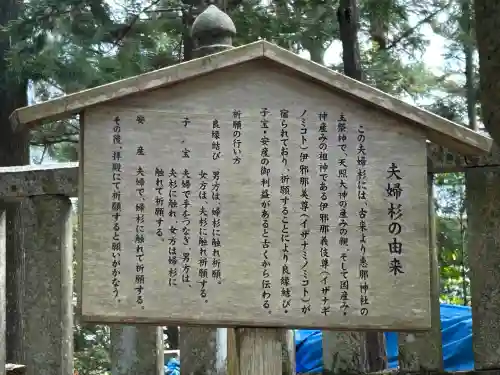 夫婦杉の由来
この夫婦杉には、古来より恵那神社の
主祭神で、天照大神の産みの親、そして国産み・
神産みの祖神である伊邪那義伎尊(イザナギ
ノミコト)伊邪那美尊(イザナミノミコト)が
宿られており、祈願することにより良縁結び・
子宝・安産の御利益があると古くから伝わる。
祈願の行い方
良縁結び 男方は、婦杉に触れ祈願。
女方は、夫杉に触れ祈願する。
子宝 夫婦で手をつなぎ、男方は、
夫杉に触れ、女方は婦杉に
触れて祈願する。
安産 夫婦で、婦杉に触れ祈願する。
その後、拝殿にて祈願すると願いがかなう。